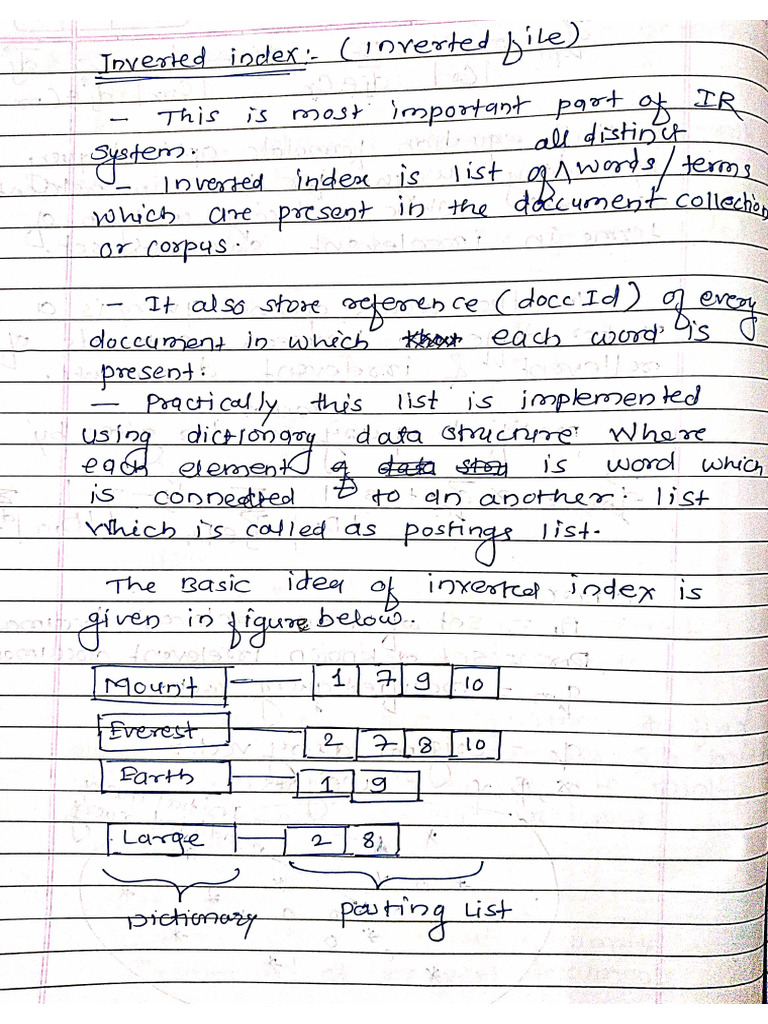 Inverted index:- (inverted file)
- This is most important part of IR
system.
all distinct
- Inverted index is list of ^ words/terms
which are present in the doccument collection
or corpus.
- It also store reference (docc Id) of every
doccument in which each word is
present:
- Practically this list is implemented
using dictionary data structure where
each element is word which
is connected to an another list
which is called as postings list.
The Basic idea of inverted index is
given in figure below.
Mount 1 7 9 10
Everest 2 7 8 10
Earth 1 9
Large 2 8
Dictionary Posting List